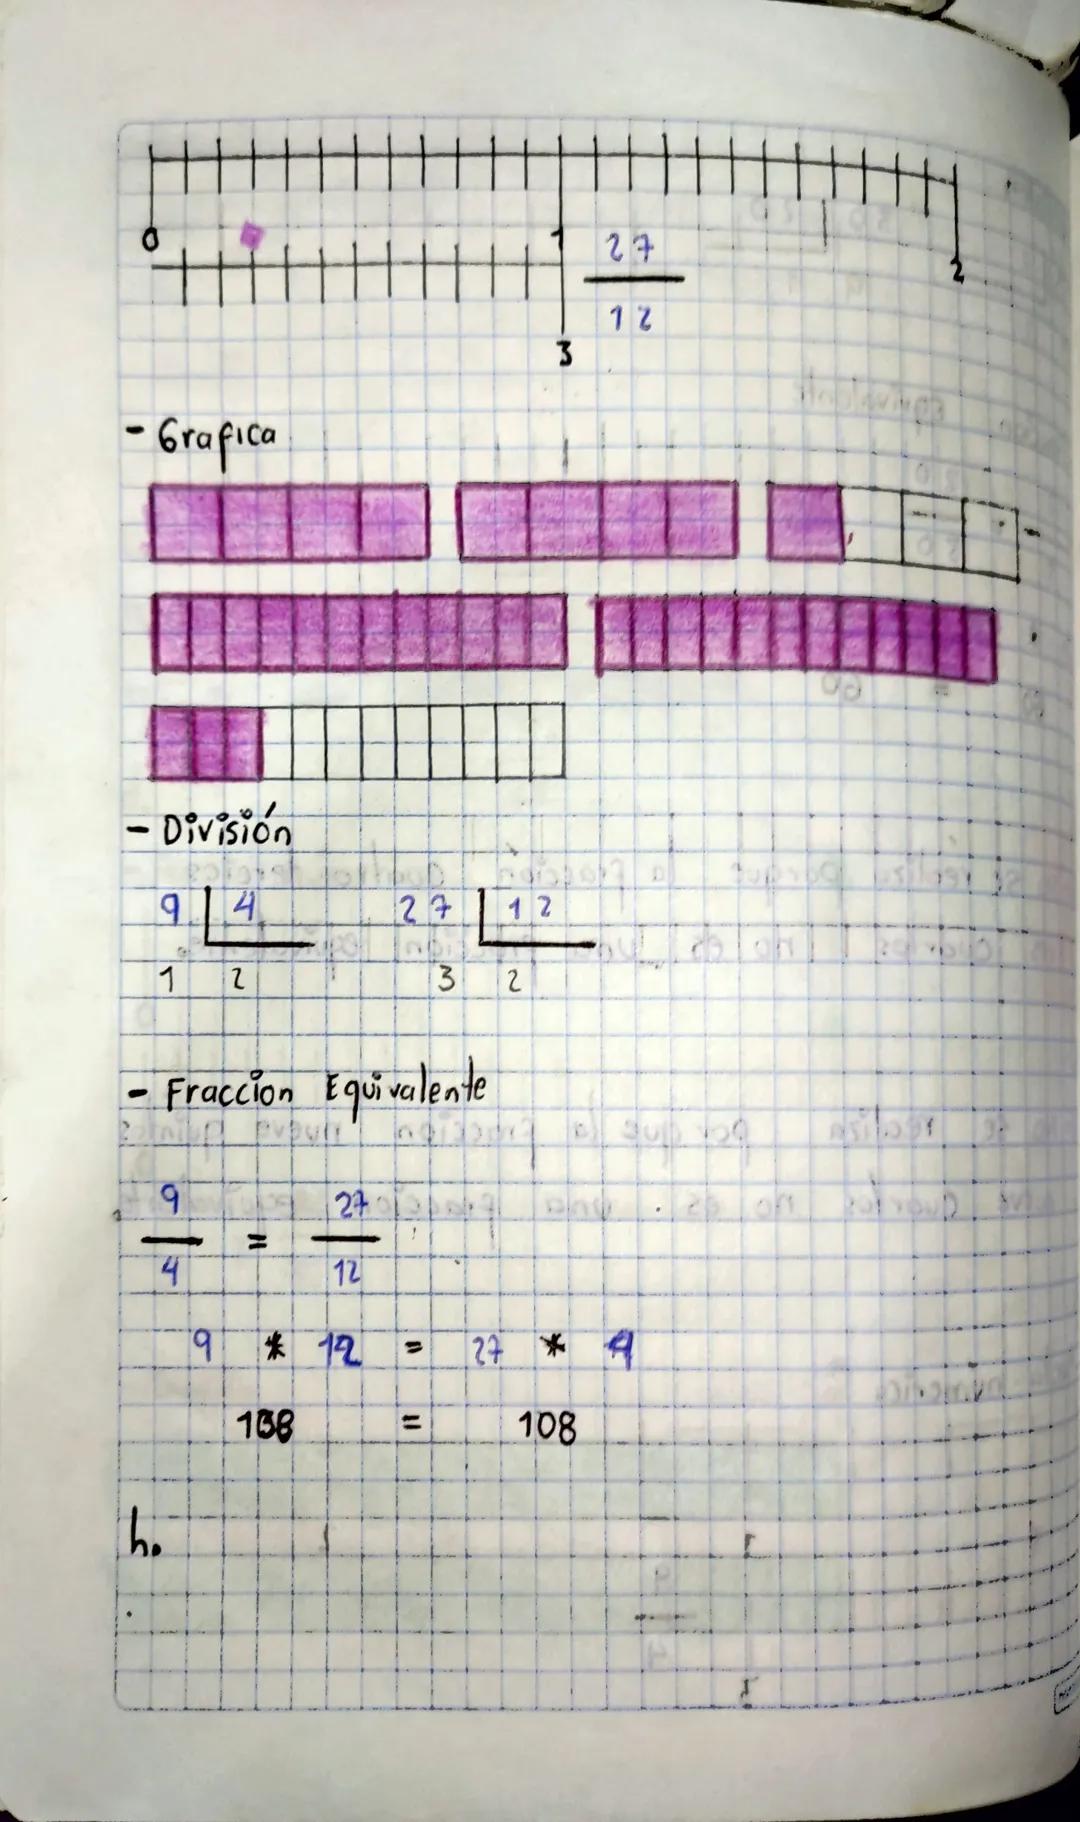 0 1 2
27
12
3
- Grafica
- División
9 4 27 12
1 2 3 2
- Fraccion Equivalente
9 = 27
4 12
9 * 12 = 27 * 4
108 = 108
h.